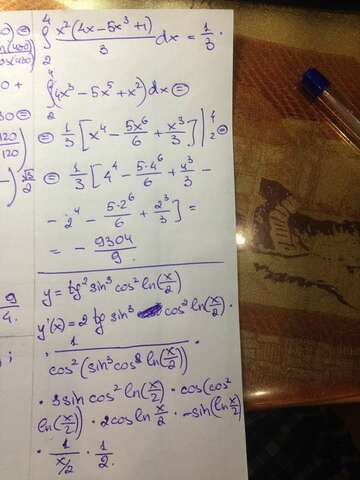 ∫₂⁴ x²(4x - 5x³ + 1)/3 dx = 1/3 ·
∫₂⁴ (4x³ - 5x⁵ + x²) dx ⊜
⊜ 1/3 [x⁴ - 5x⁶/6 + x³/3] |₂⁴ ⊜
⊜ 1/3 [4⁴ - 5·4⁶/6 + 4³/3 -
- 2⁴ - 5·2⁶/6 + 2³/3] =
= - 9304/9.
y = tg² sin³ cos² ln(x/2)
y'(x) = 2 tg sin³ cos² ln(x/2) ·
· 1/cos²(sin³ cos² ln(x/2)) ·
· 3 sin cos² ln(x/2) · cos(cos²
ln(x/2)) · 2 cos ln x/2 · -sin(ln x/2)
· 1/(x/2) · 1/2.